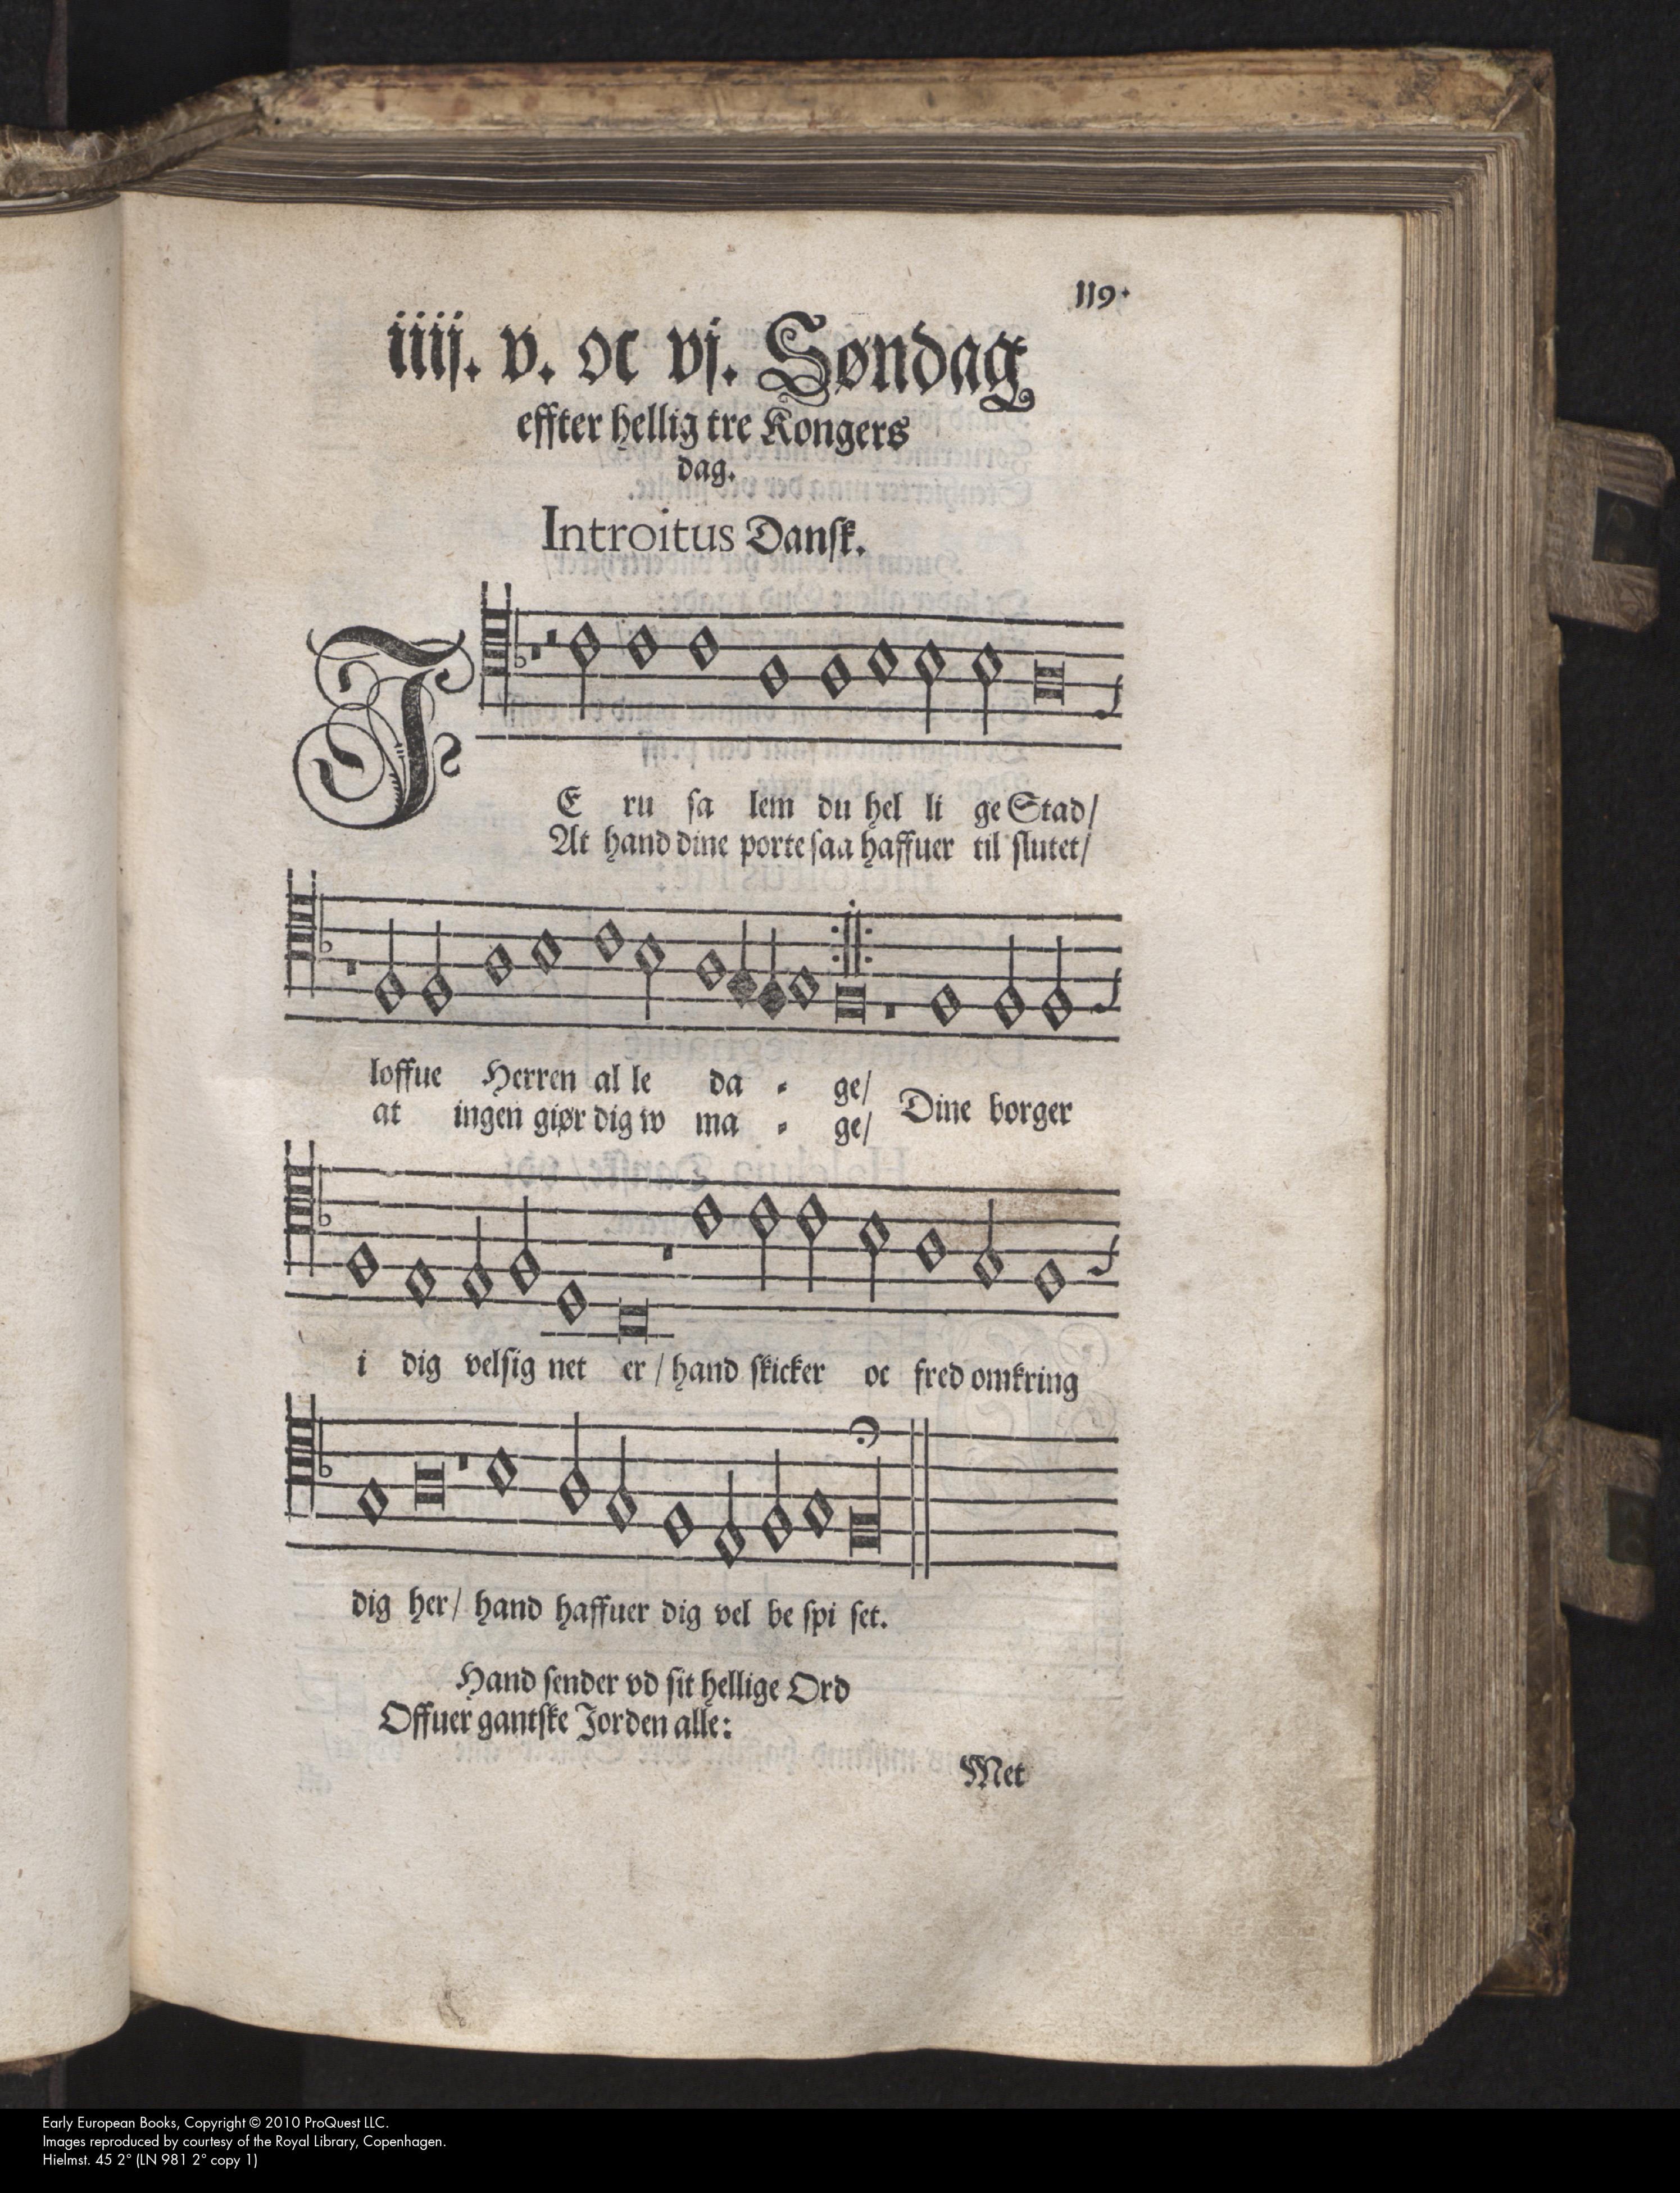 119.
iiij. v. oc vj. Søndag
effter hellig tre Kongers
dag.
Introitus Dansk.
JE ru sa lem du hel li ge Stad/
At hand dine porte saa haffuer til slutet/
loffue Herren al le da - ge/
at ingen giør dig w ma - ge/ Dine borger
i dig velsig net er / hand skicker oc fred omkring
dig her/ hand haffuer dig vel be spi set.
Hand sender vd sit hellige Ord
Offuer gantske Jorden alle:
Met
Early European Books, Copyright © 2010 ProQuest LLC.
Images reproduced by courtesy of the Royal Library, Copenhagen.
Hielmst. 45 2° (LN 981 2° copy 1)